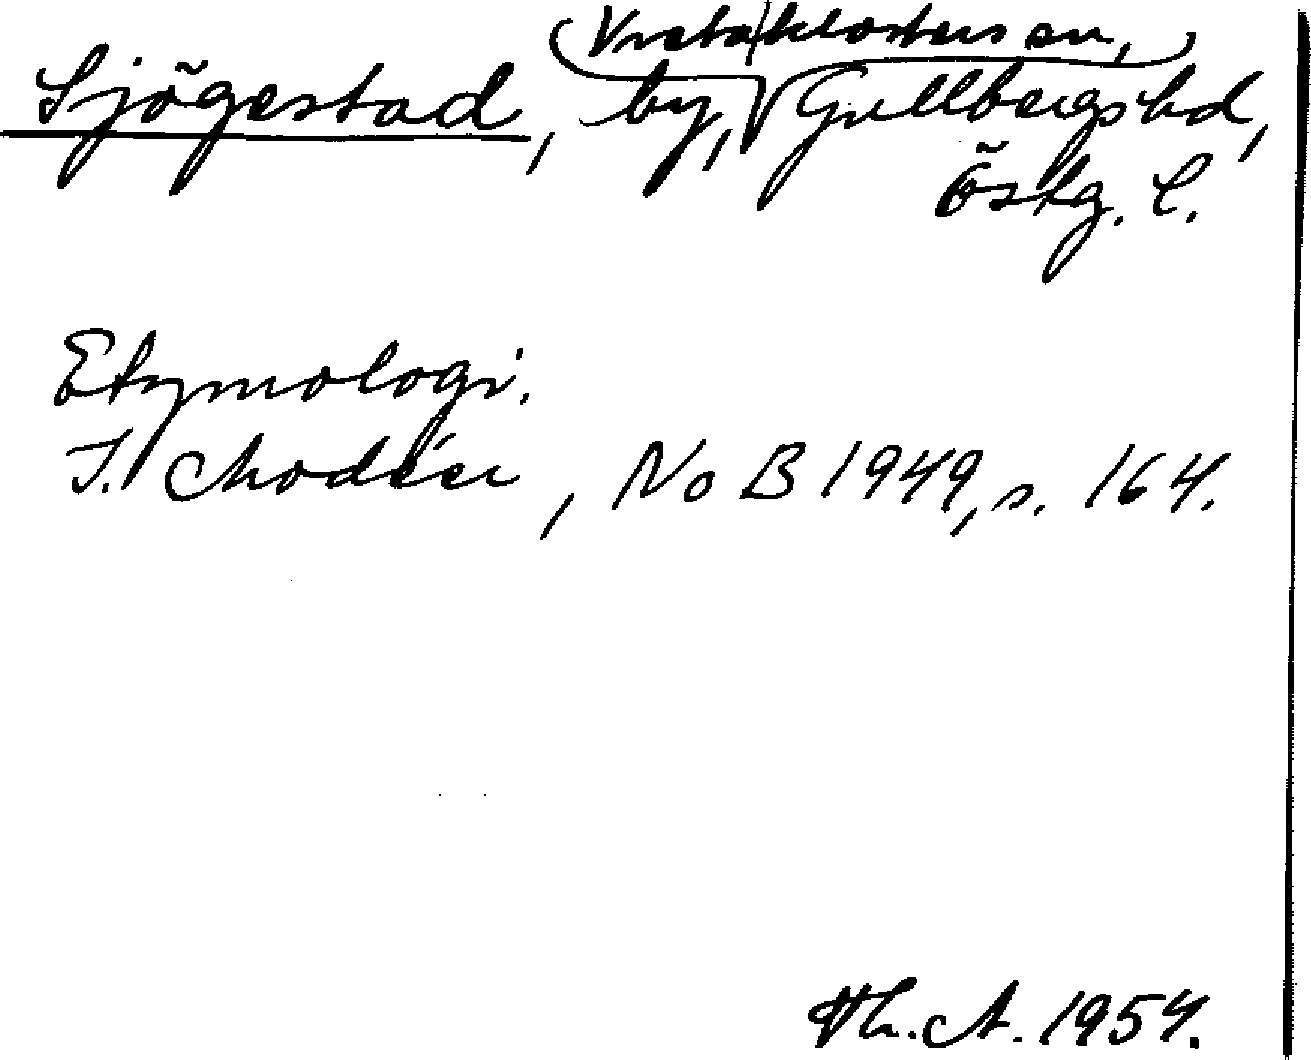 Vreta klosters sn,
Sjögestad, by, Gullbergs hd,
Östg. l.
Etymologi.
I. Modéer, NoB 1949, s. 164.
Th. A. 1954.